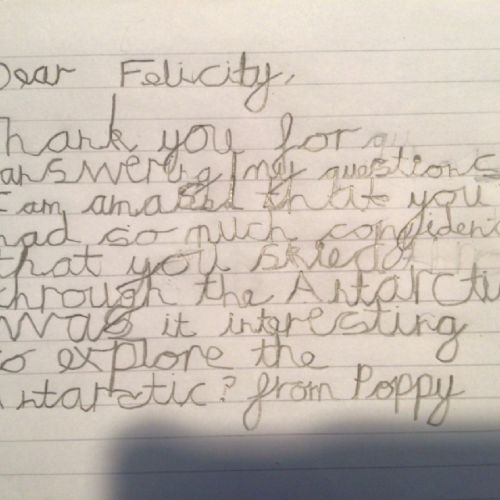 Dear Felicity,
Thank you for
answering my questions
I am amazed that you
had so much confidenc
that you skied
through the Antarcti
was it interesting
to explore the
Antarctic? from Poppy